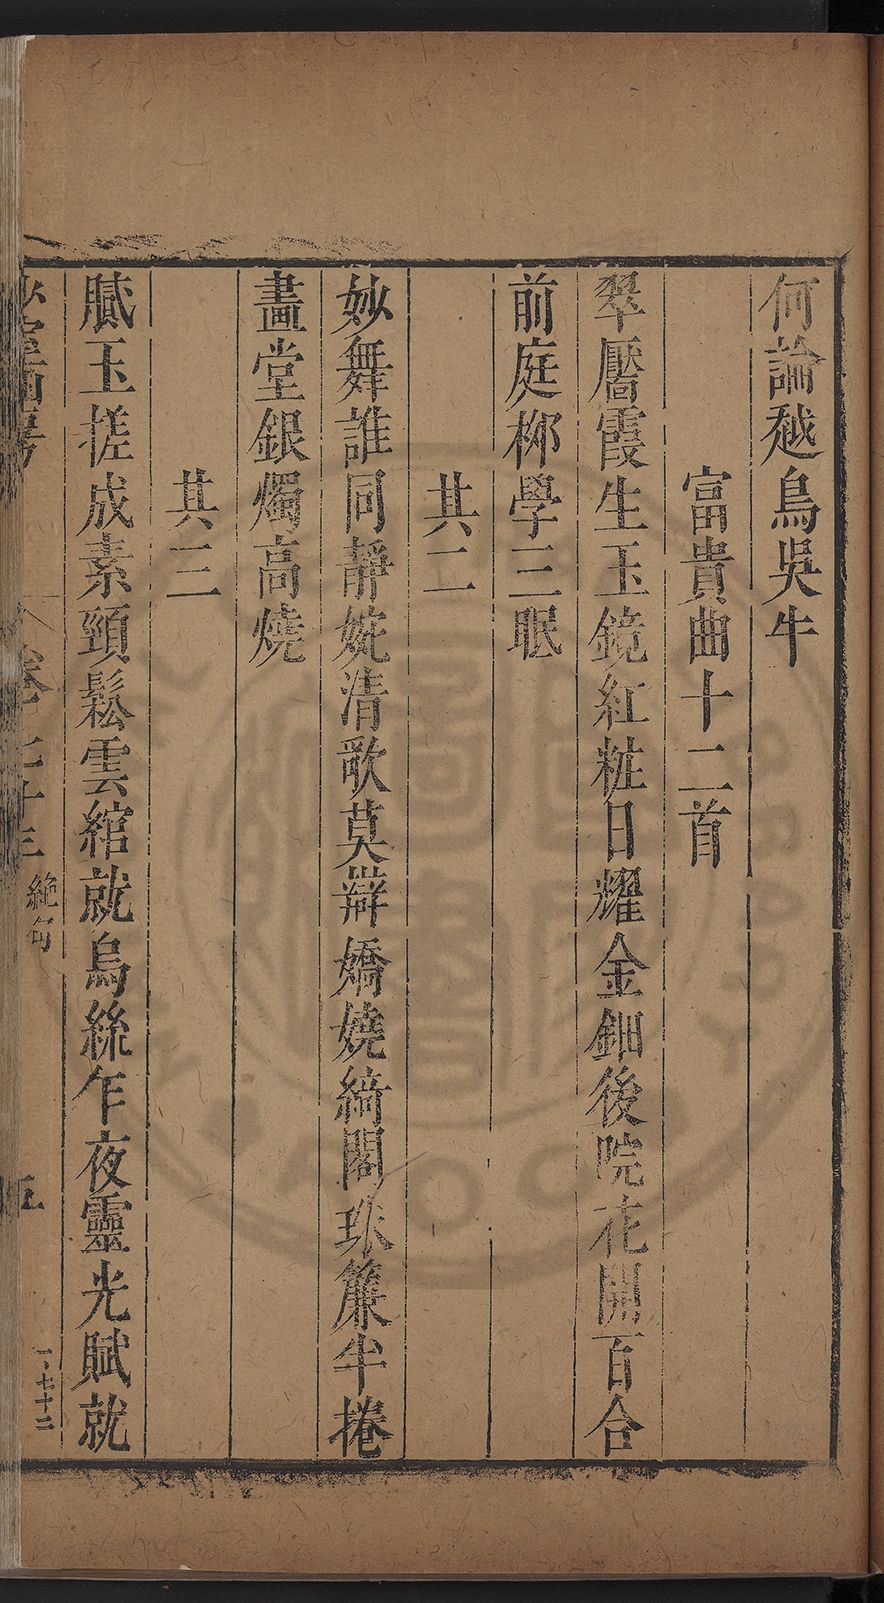 何論越鳥吳牛
富貴曲十二首
翠靨霞生玉鏡紅粧日耀金鈿後院花開百合
前庭柳學三眠
其二
妙舞誰同靜婉清歌莫辯嬌嬈綺閣珠簾半捲
畫堂銀燭高燒
其三
膩玉搓成素頸鬆雲綰就烏絲乍夜靈光賦就
絶句
五
一七十二